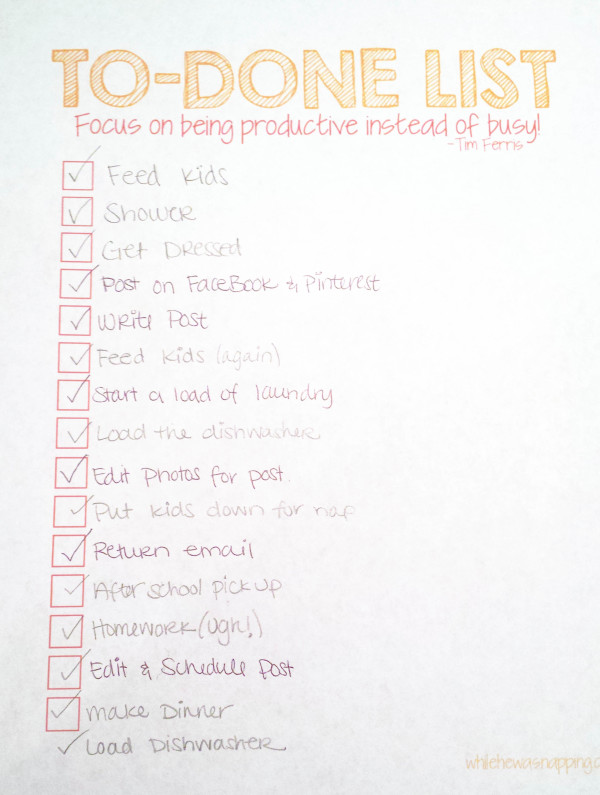 TO-DONE LIST
Focus on being productive instead of busy!
-Tim Ferris
Feed kids
Shower
Get Dressed
Post on FaceBook & Pinterest
Write Post
Feed kids (again)
Start a load of laundry
Load the dishwasher
Edit photos for post.
Put kids down for nap
Return email
After school pick up
Homework (ugh!)
Edit & Schedule post
make Dinner
Load Dishwasher
whilehewasnapping.c